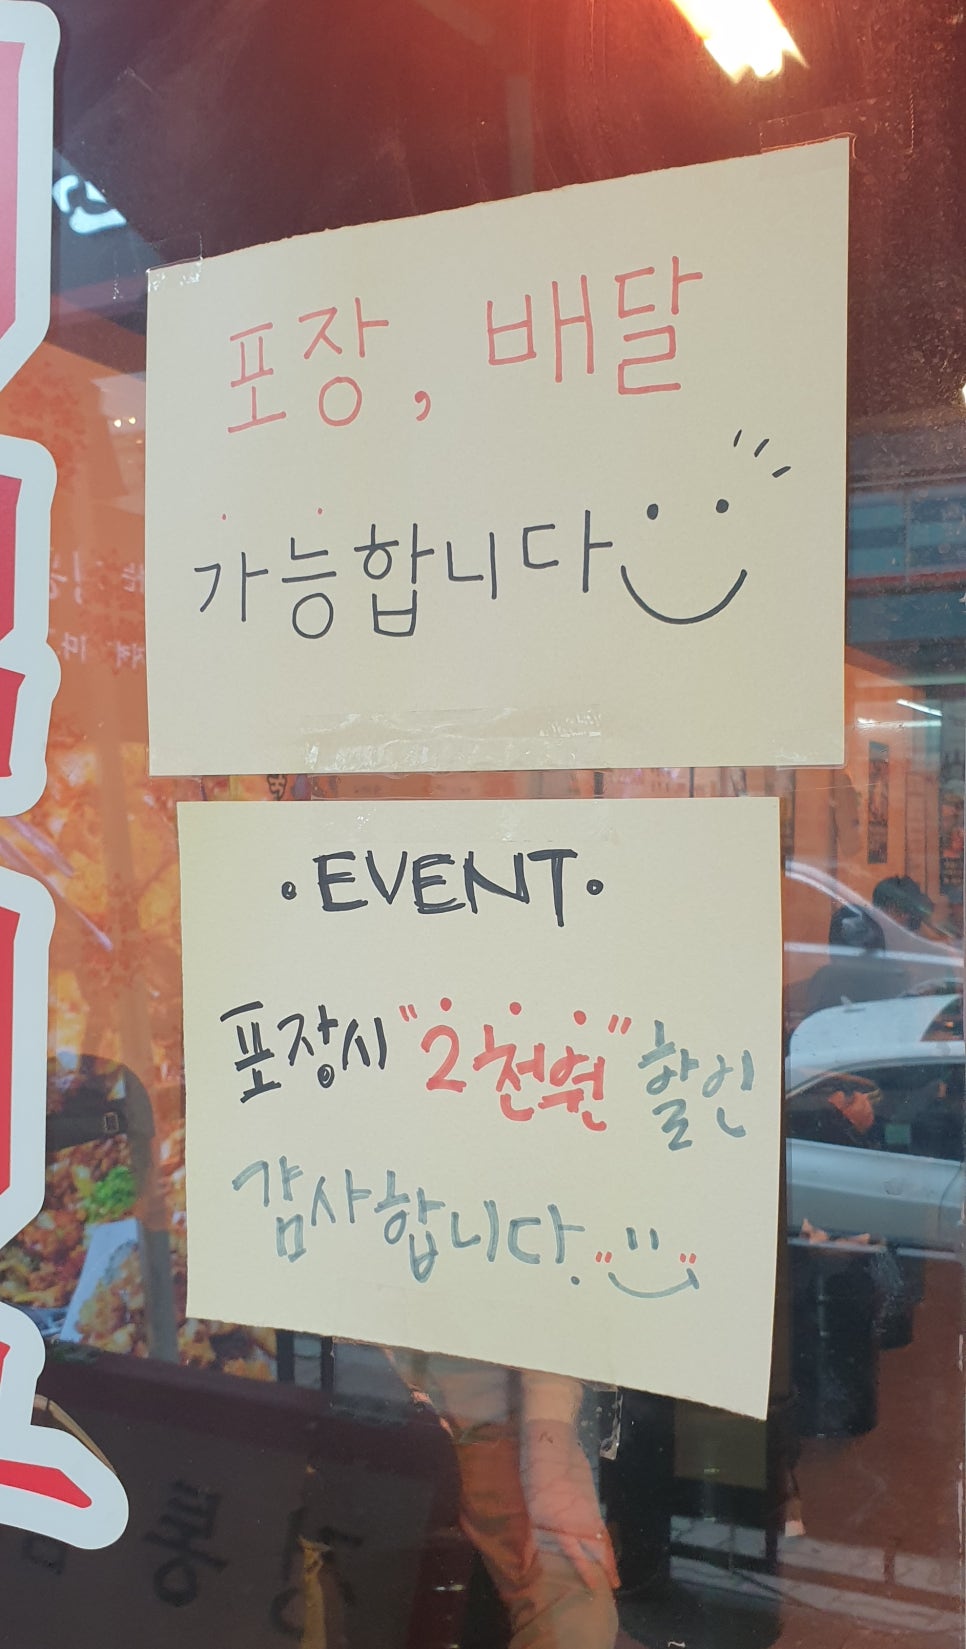 포장, 배달
가능합니다
·EVENT·
포장시 "2천원" 할인
감사합니다.